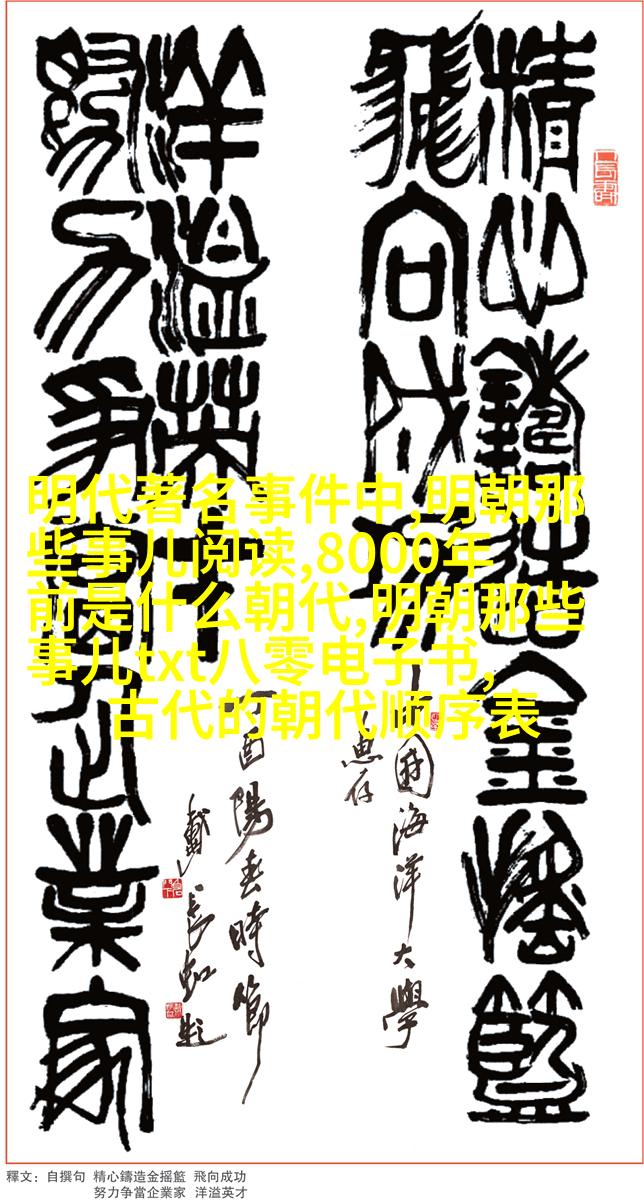 精心鑄造金摇籃
飛向成功
中國海洋大學
惠存
努力争當企業家
洋溢英才
丁酉陽春時節
戴長虹題
明代著名事件中,明朝那
些事儿阅读,8000年
前是什么朝代,明朝那些
事儿txt八零电子书,
古代的朝代顺序表
釋文：自撰句 精心鑄造金摇籃 飛向成功
努力争當企業家 洋溢英才